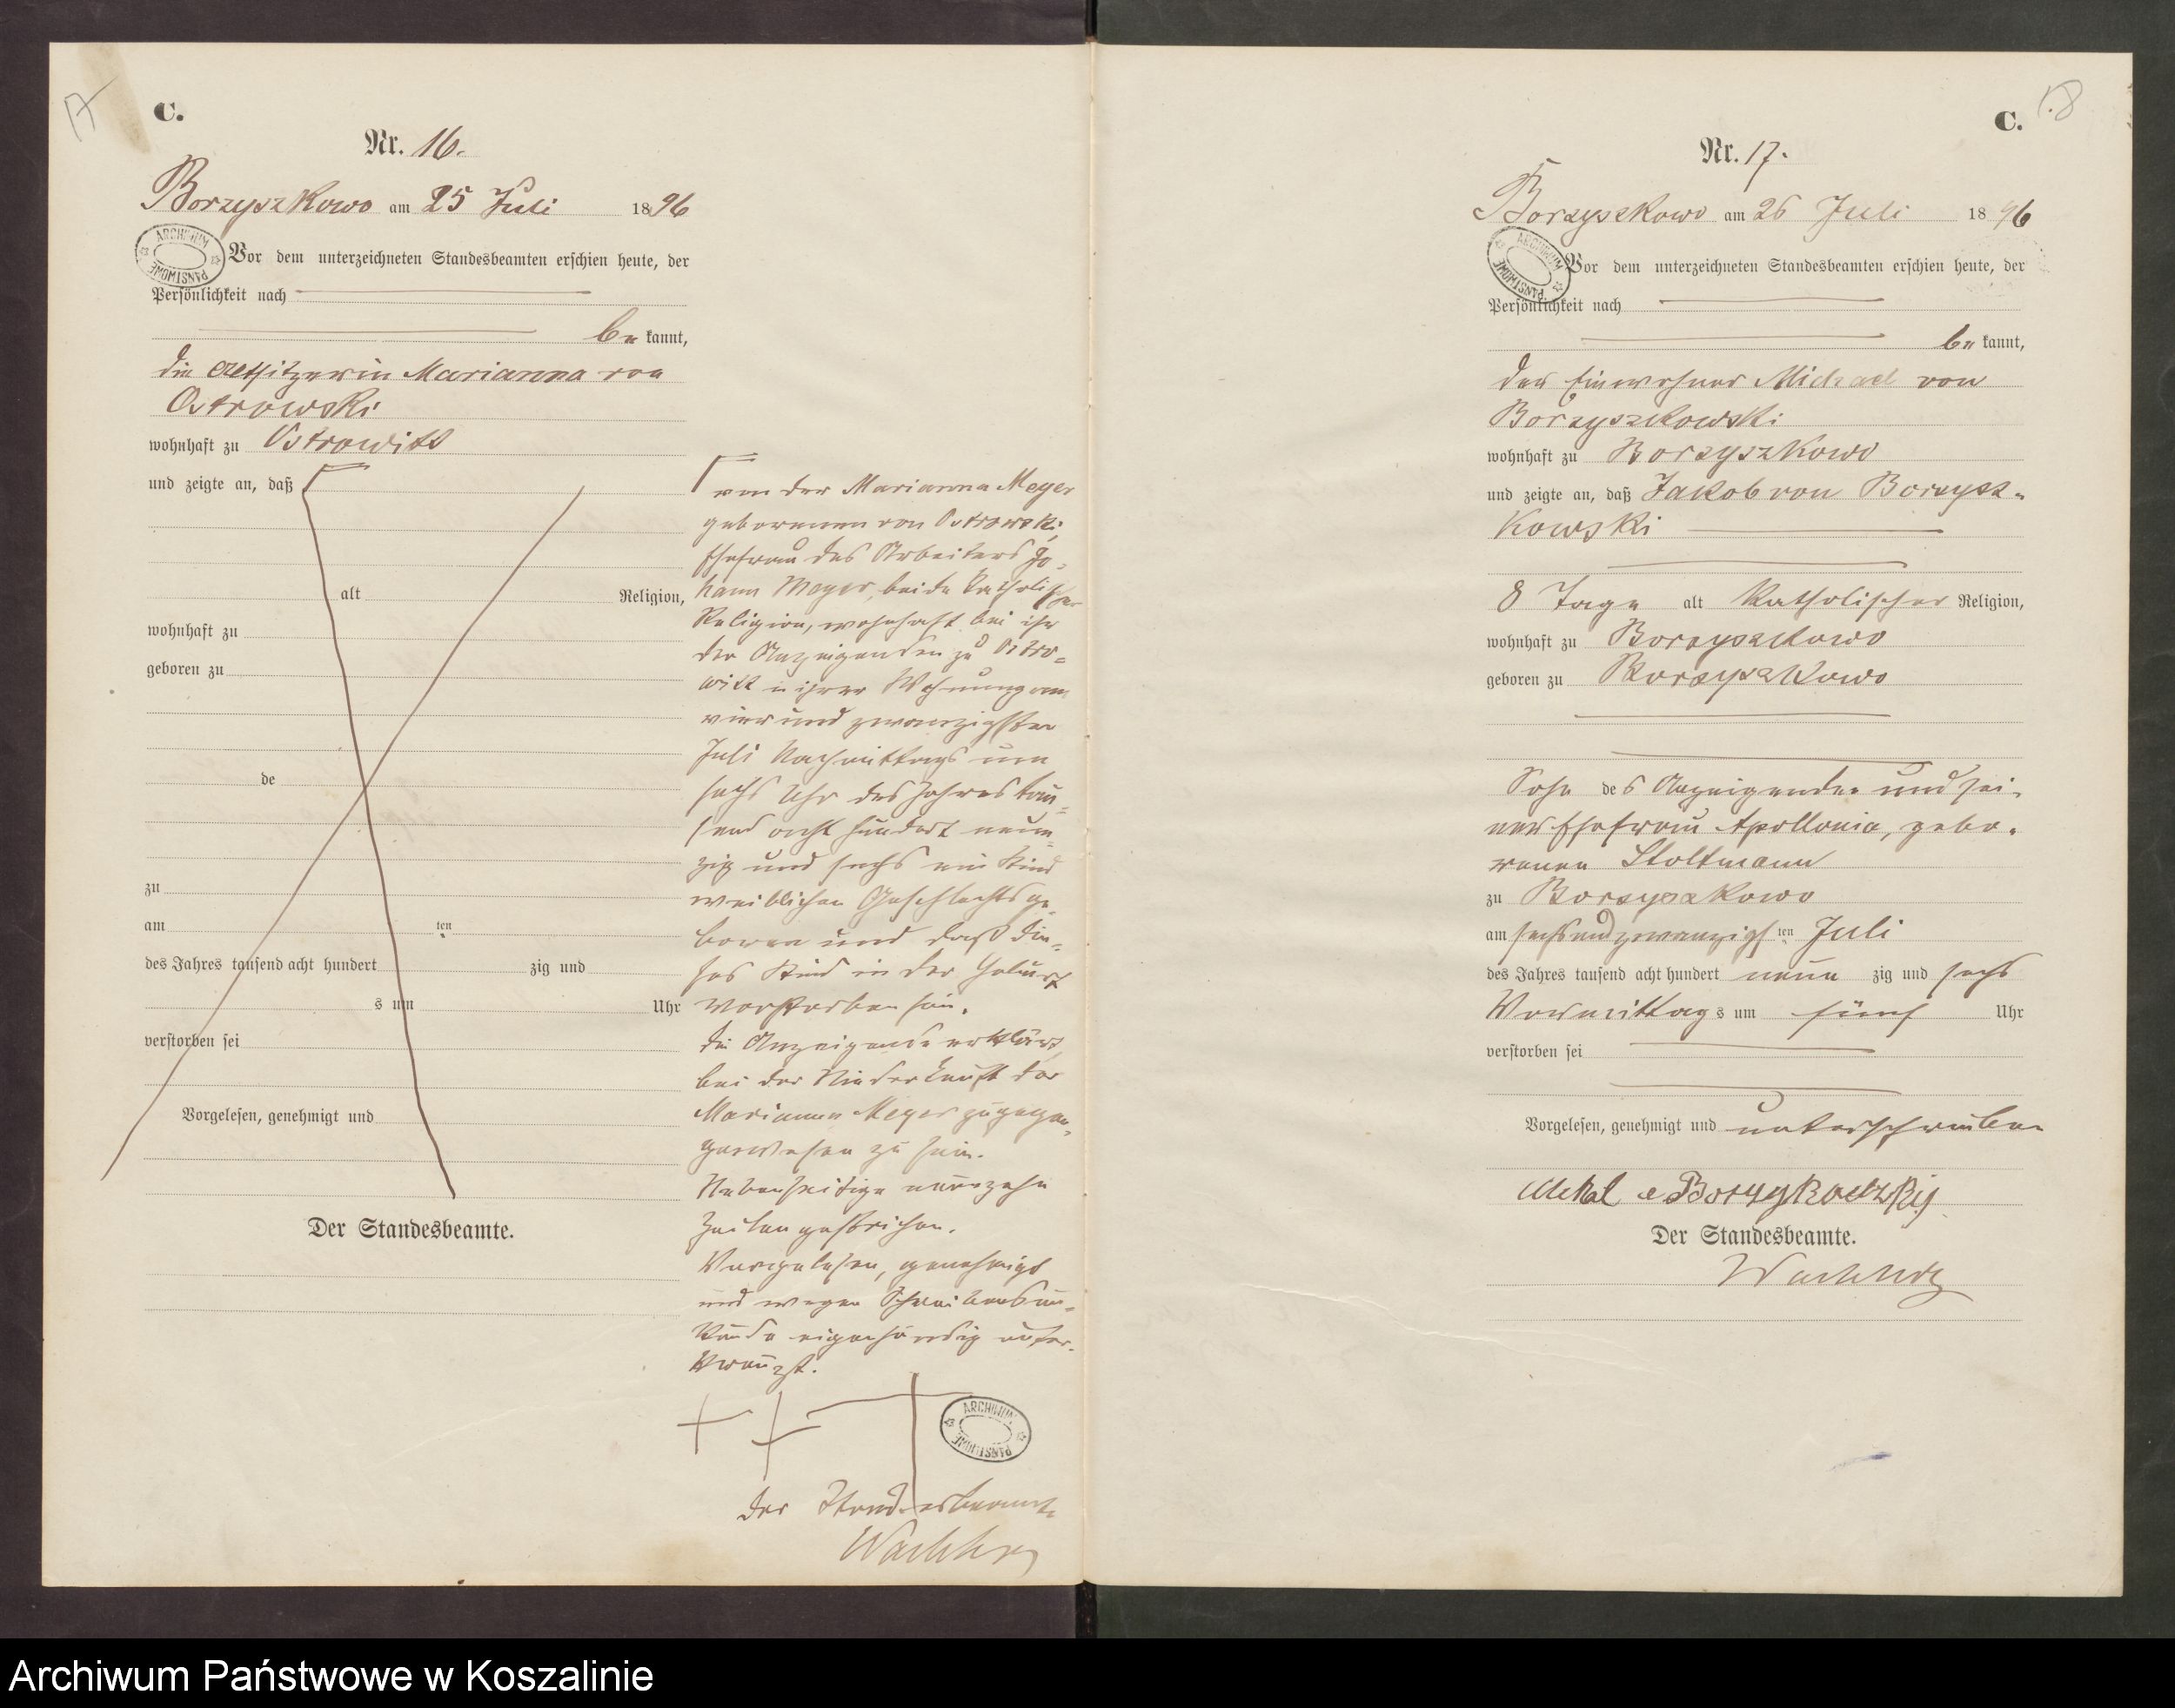 17
C.
Nr. 16.
Borzyszkowo am 25 Juli 1896
Vor dem unterzeichneten Standesbeamten erschien heute, der
Persönlichkeit nach
bekannt,
die Altsitzerin Marianna von
Ostrowski
wohnhaft zu Ostrowitt
und zeigte an, daß
alt Religion,
wohnhaft zu
geboren zu
de
zu
am ten
des Jahres tausend acht hundert zig und
s um Uhr
verstorben sei
Vorgelesen, genehmigt und
Der Standesbeamte.
von der Marianna Meyer
geborenen von Ostrowski
Ehefrau des Arbeiters Jo-
hann Meyer, beide katholischer
Religion, wohnhaft bei ihr
der Anzeigenden zu Ostro-
witt in ihrer Wohnung am
vier und zwanzigsten
Juli Nachmittags um
sechs Uhr des Jahres tau-
send acht hundert neun-
zig und sechs ein Kind
weiblichen Geschlechts ge-
boren und daß die-
ses Kind in der Geburt
verstorben sei.
Die Anzeigende erklärt,
bei der Niederkunft der
Marianna Meyer zugegen
gewesen zu sein.
Nebenseitige neunzehn
Zeilen gestrichen.
Vorgelesen, genehmigt
und wegen Schreibensun-
kunde eigenhändig unter-
kreuzt.
+ + +
Der Standesbeamte
ARCHIWUM PAŃSTWOWE
ARCHIWUM PAŃSTWOWE
18
C.
Nr. 17.
Borzyszkowo am 26 Juli 1896
ARCHIWUM PAŃSTWOWE
Vor dem unterzeichneten Standesbeamten erschien heute, der
Persönlichkeit nach
bekannt,
der Einwohner Michael von
Borzyszkowski
wohnhaft zu Borzyszkowo
und zeigte an, daß Jakob von Borzysz-
kowski
8 Tage alt katholischer Religion,
wohnhaft zu Borzyszkowo
geboren zu Borzyszkowo
Sohn des Anzeigenden und sei-
ner Ehefrau Apollonia, gebo-
renen Stoltmann
zu Borzyszkowo
am sechsundzwanzigsten Juli
des Jahres tausend acht hundert neunzig und sechs
Vormittags um fünf Uhr
verstorben sei
Vorgelesen, genehmigt und unterschrieben
Der Standesbeamte.
Archiwum Państwowe w Koszalinie